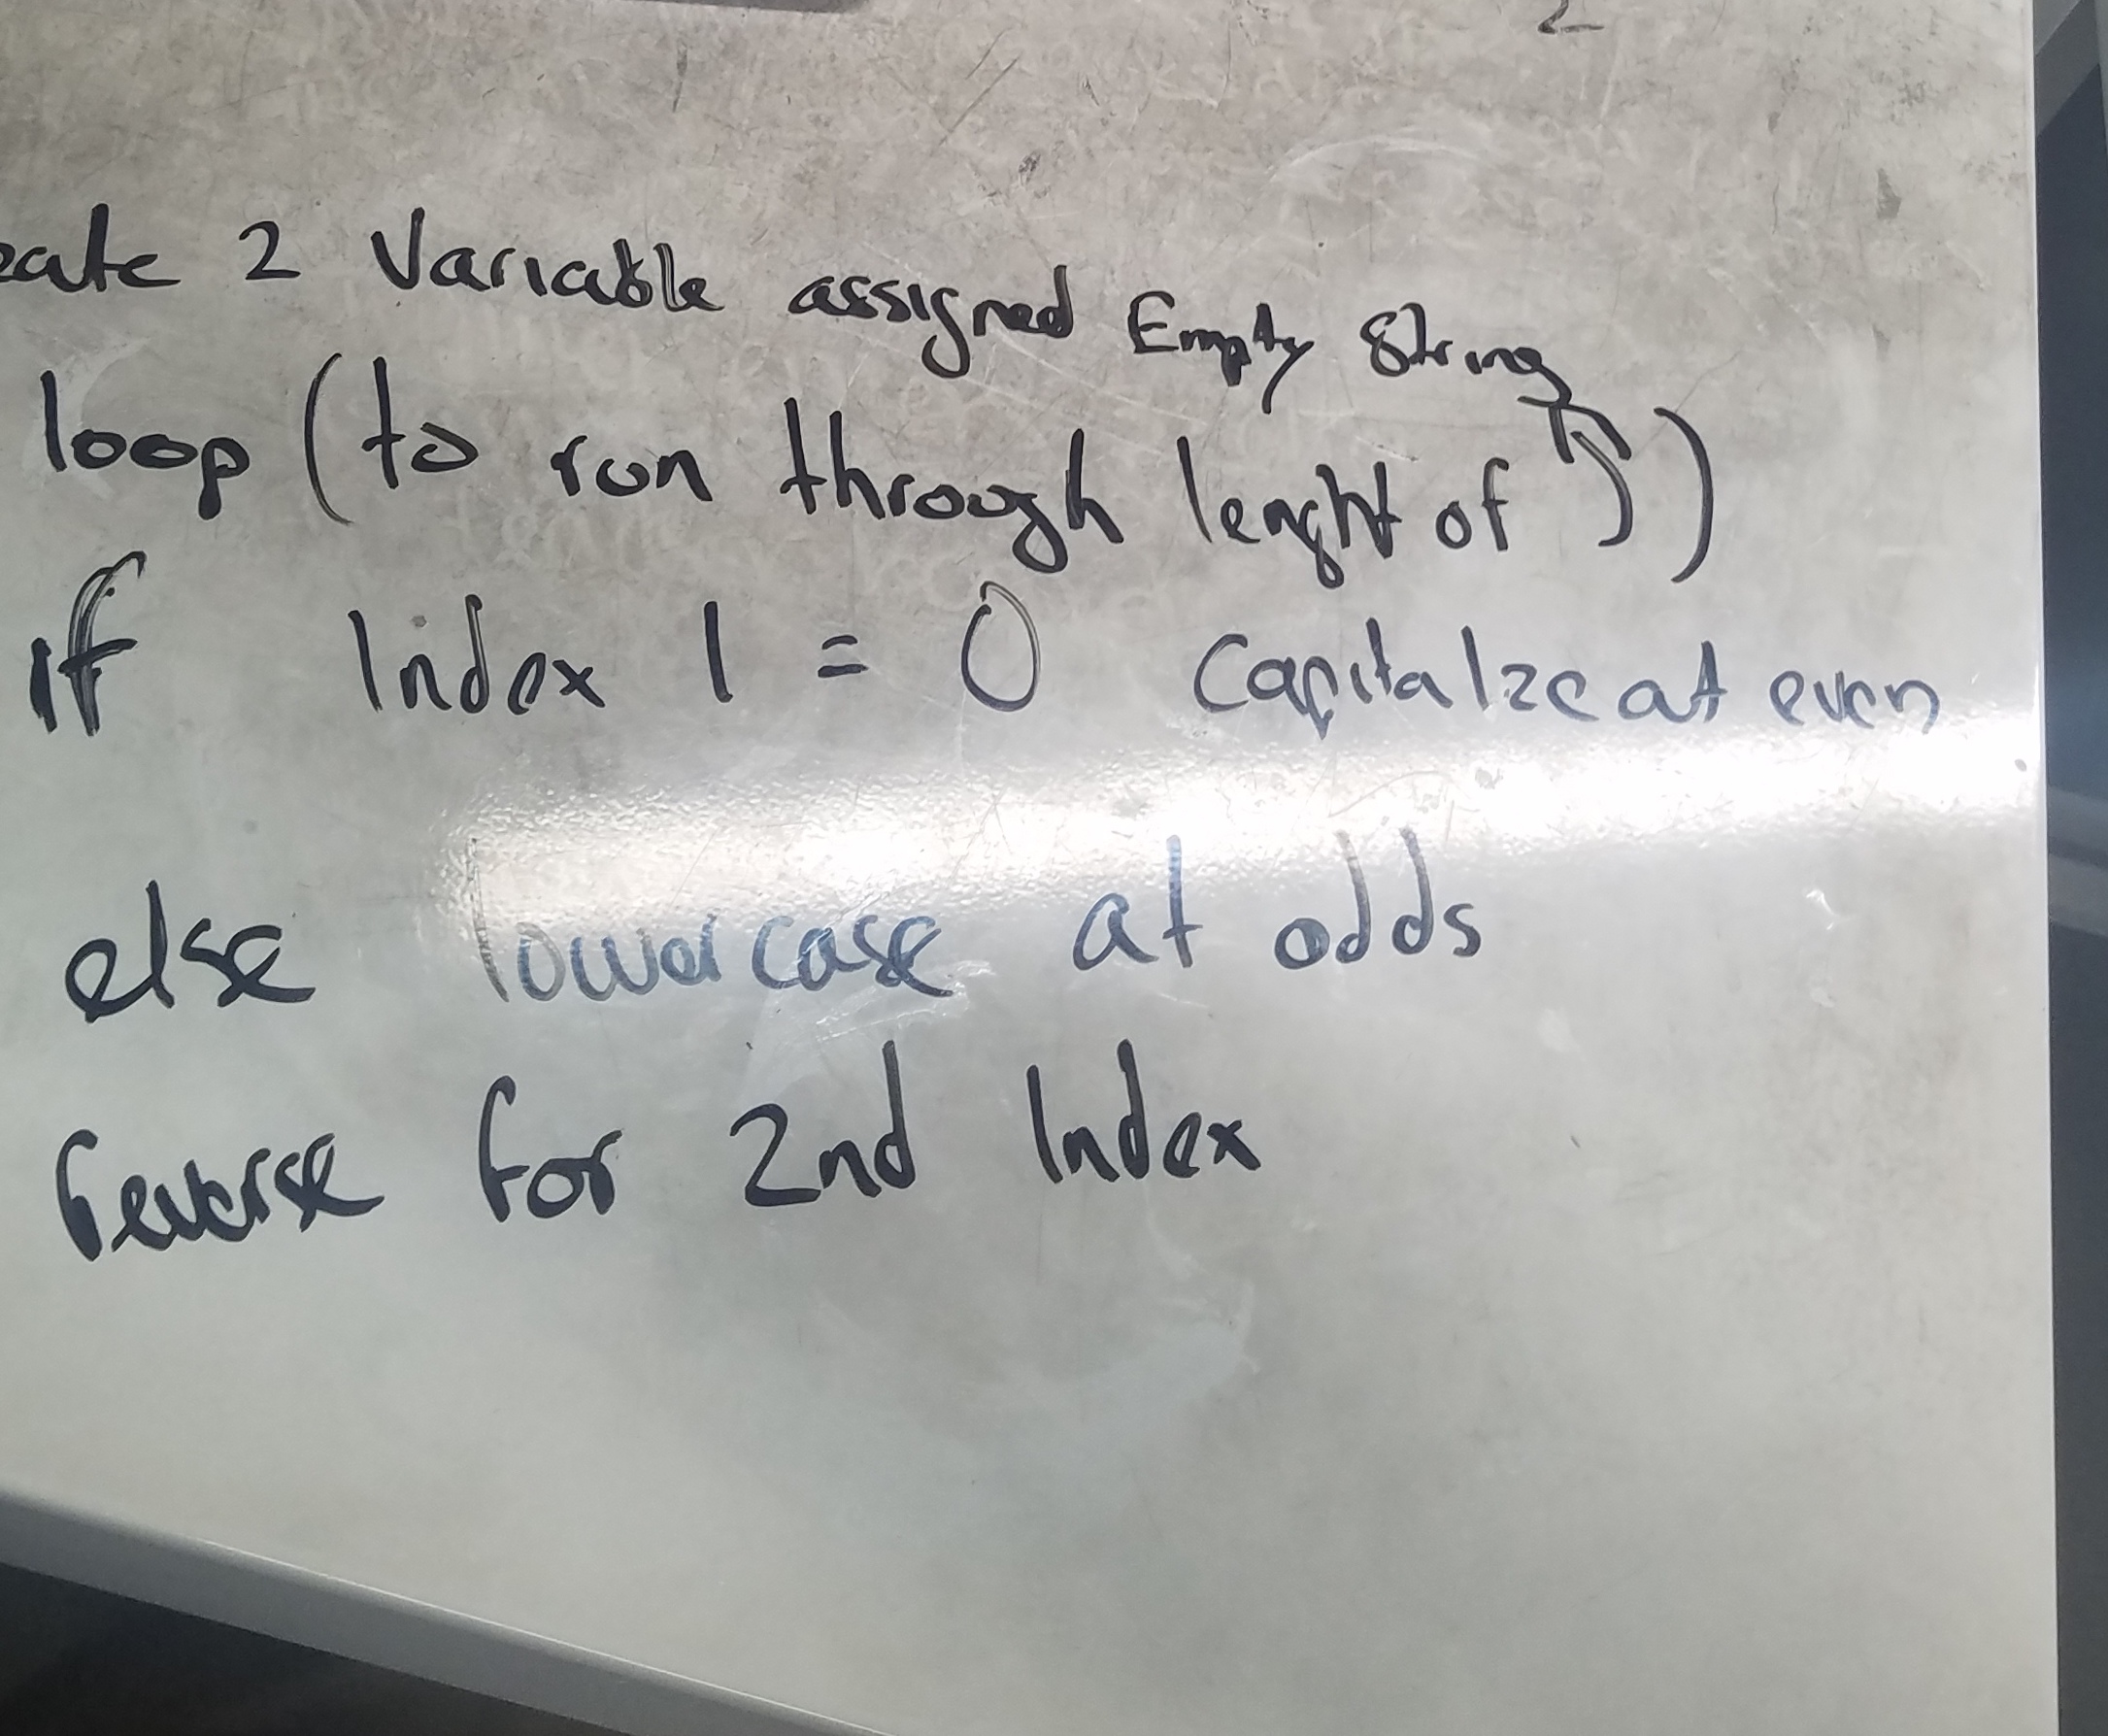 2
eate 2 Variable assigned Empty String
loop (to run through lenght of )
if Index 1 = 0 Capitalze at even
else lowercase at odds
reverse for 2nd Index